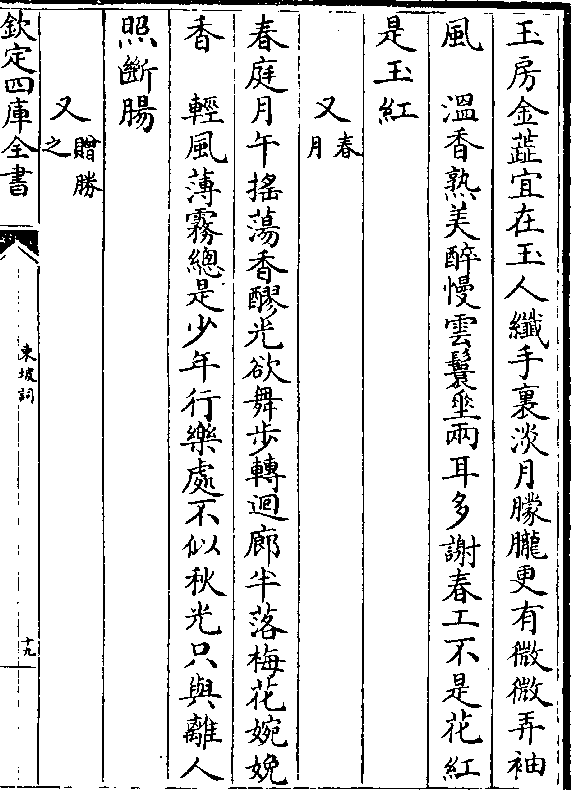 玉房金蕋宜在玉人纖手裏淡月朦朧更有微微弄袖
風　溫香熟美醉慢雲鬟垂兩耳多謝春工不是花紅
是玉紅
又春月
春庭月午搖蕩香醪光欲舞步轉迴廊半落梅花婉娩
香　輕風薄霧總是少年行樂處不似秋光只與離人
照斷腸
又贈勝之
欽定四庫全書
東坡詞
十九